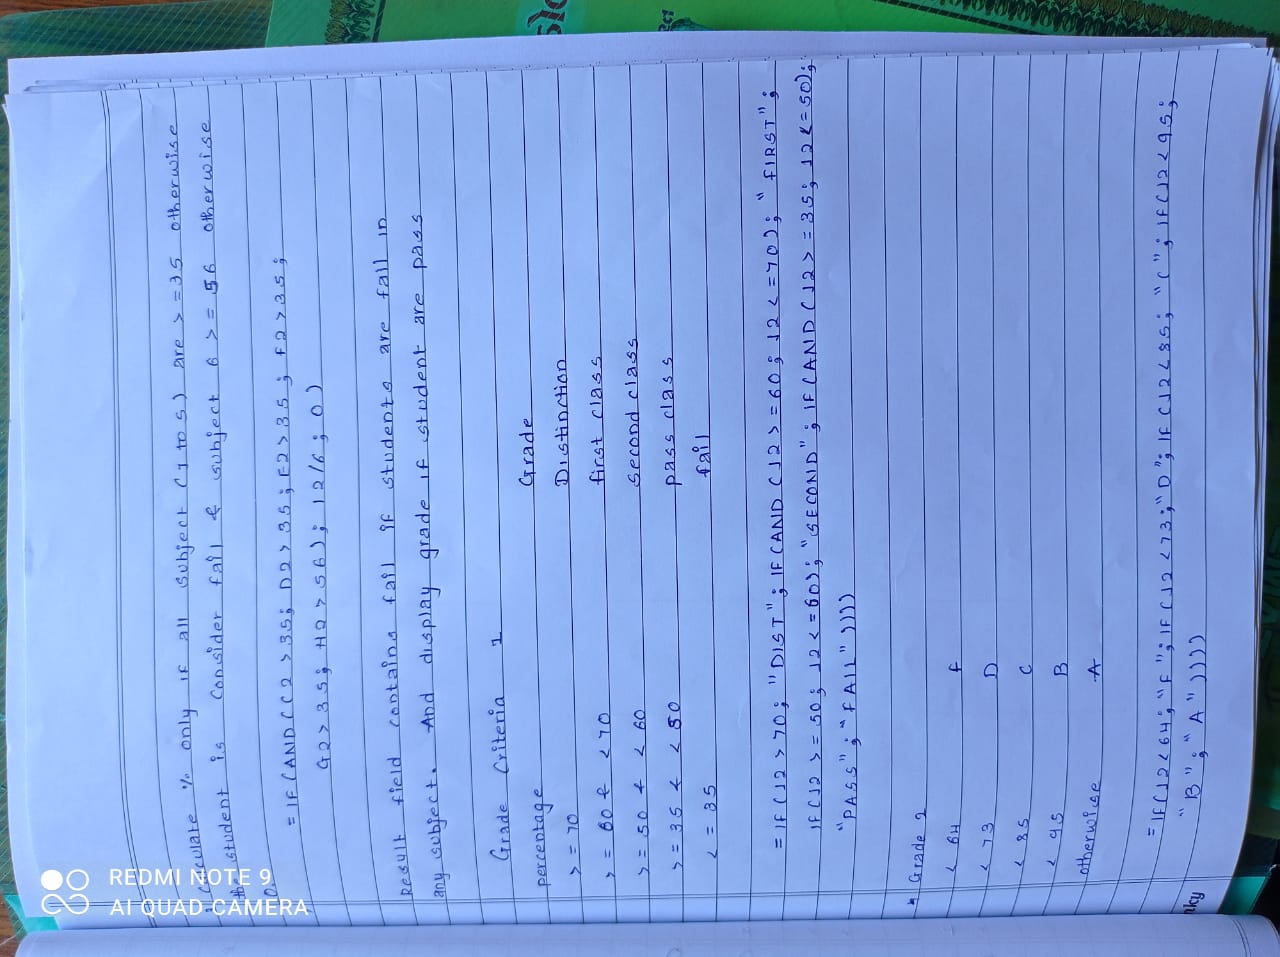 REDMI NOTE 9
AI QUAD CAMERA
Calculate % only if all subject (1 to 5) are >=35 otherwise
the student is consider fail & subject 6 >= 56 otherwise
0.
= IF (AND ((C2 > 35; D2 > 35; E2 > 35; F2 > 35;
G2 > 35; H2 > 56); I2/6; 0)
Result field contains fail if students are fall in
any subject. And display grade if student are pass
Grade Criteria 1
percentage Grade
>= 70 Distinction
>= 60 & <70 first class
>= 50 & < 60 second class
>= 35 & < 50 pass class
<= 35 fail
= IF (J2 > 70; "DIST"; IF (AND (J2 >= 60; J2 <= 70); "FIRST";
IF (J2 >= 50; J2 <= 60); "SECOND"; IF (AND (J2 >= 35; J2 <= 50);
"PASS"; "FAIL" ))))
Grade 2
< 64 F
< 73 D
< 85 C
< 95 B
otherwise A
= IF (J2 < 64; "F"; IF (J2 < 73; "D"; IF (J2 < 85; "C"; IF (J2 < 95;
"B"; "A" ))))